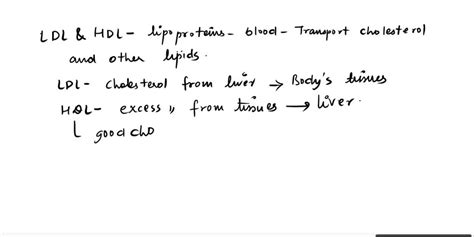 LDL & HDL - lipoproteins - blood - Transport cholesterol
and other lipids.
LDL - cholesterol from liver → Body's tissues
HDL - excess 〃 from tissues → liver.
good cho